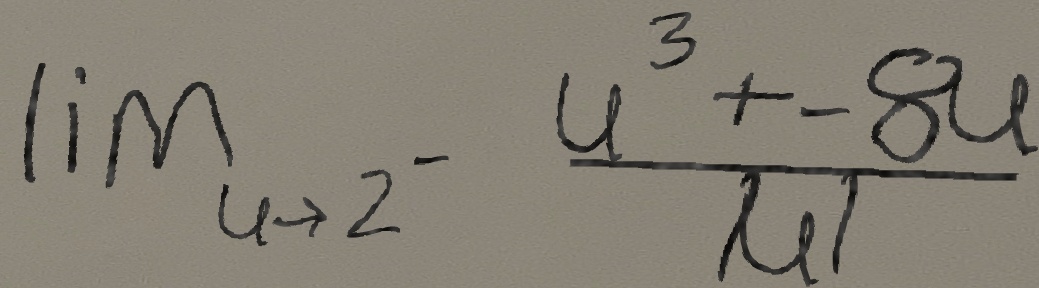 lim_{u→2^-} \frac{u^3 + -8u}{|u|}